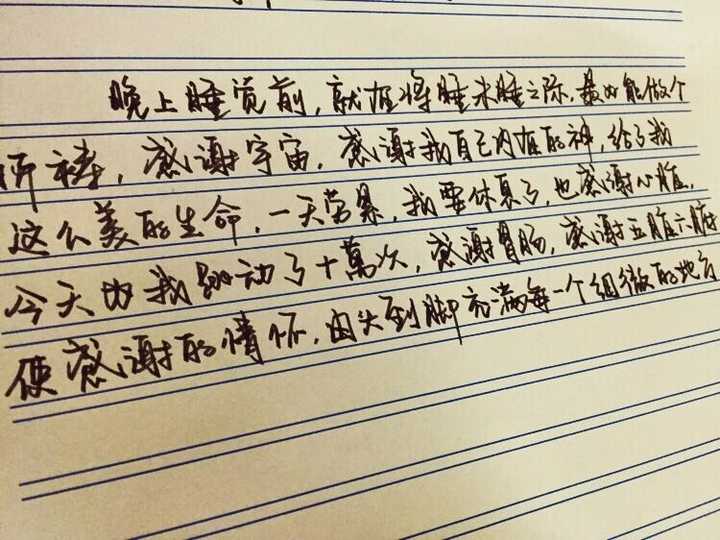 晚上睡觉前，就在将睡未睡之际，最好能做个
祈祷，感谢宇宙，感谢我自己内在的神，给了我
这么美的生命，一天劳累，我要休息了，也感谢心脏，
今天为我跳动了十萬次，感谢胃肠，感谢五脏六腑
使感谢的情怀，由头到脚充满每一个细微的地方